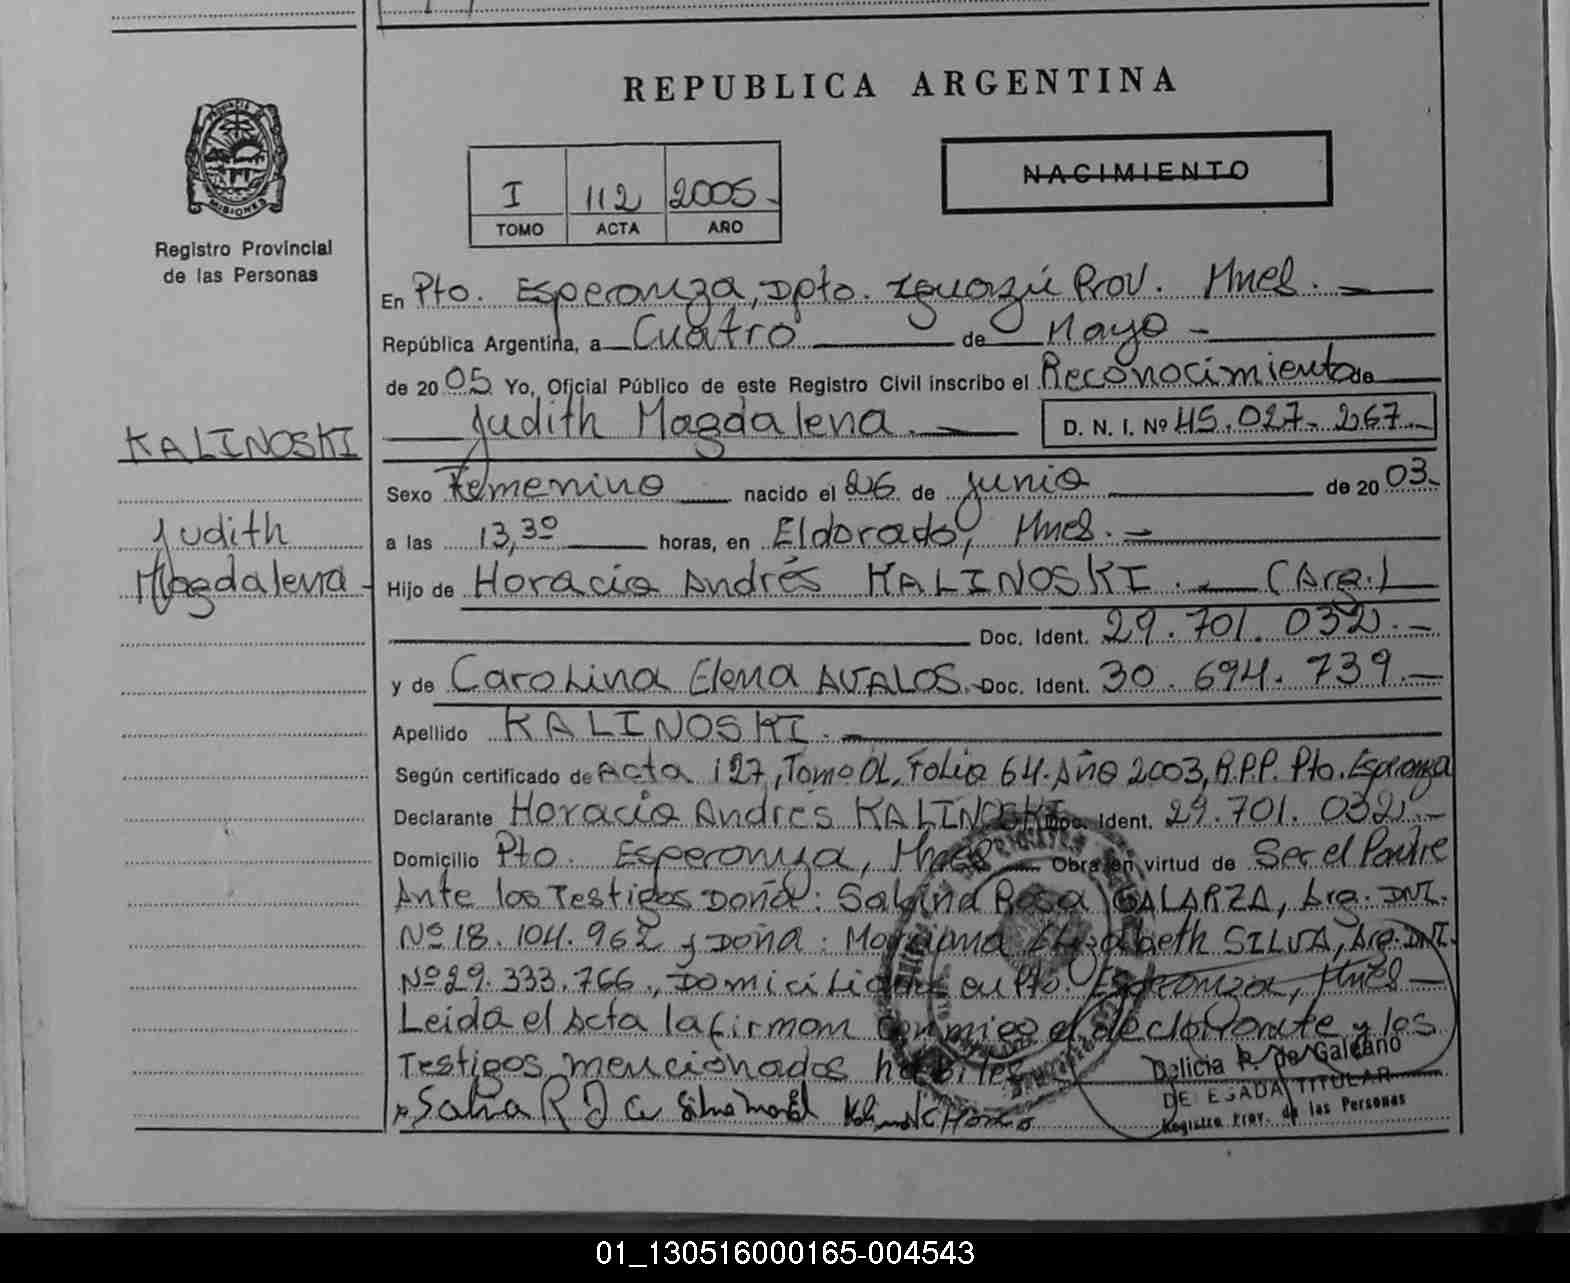 REPUBLICA ARGENTINA
MISIONES
Registro Provincial
de las Personas
I 112 2005.-
TOMO ACTA AÑO
NACIMIENTO
En Pto. Esperanza, Dpto. Iguazú Prov. Mnes.
República Argentina, a Cuatro de Mayo -
de 20 05 Yo, Oficial Público de este Registro Civil inscribo el Reconocimiento de
Judith Magdalena. D. N. I. Nº 45.027.267.-
KALINOSKI
Judith
Magdalena -
Sexo Femenino nacido el 26 de junio de 20 03.-
a las 13,30 horas, en Eldorado, Mnes. -
Hijo de Horacio Andrés KALINOSKI. (Arg.)
Doc. Ident. 29.701.032.-
y de Carolina Elena AVALOS.- Doc. Ident. 30.694.739.-
Apellido KALINOSKI.
Según certificado de Acta 127, Tomo Folio 64. Año 2003, R.P.P. Pto. Esperanza
Declarante Horacio Andrés KALINOSKI Doc. Ident. 29.701.032.-
Domicilio Pto. Esperanza, Mnes Obra en virtud de Ser el Padre
Ante los Testigos Doña: Sabina Rosa GALARZA, Arg. DNI.
Nº 18.104.962 y Doña: Mariana Elizabeth SILVA, Arg. DNI.
Nº 29.333.766., Domiciliadas en Pto. Esperanza, Mnes -
Leida el Acta la firman conmigo el declarante y los
Testigos mencionados habiles
Delicia R. de Galeano
DELEGADA TITULAR
Registro Prov. de las Personas
01_130516000165-004543